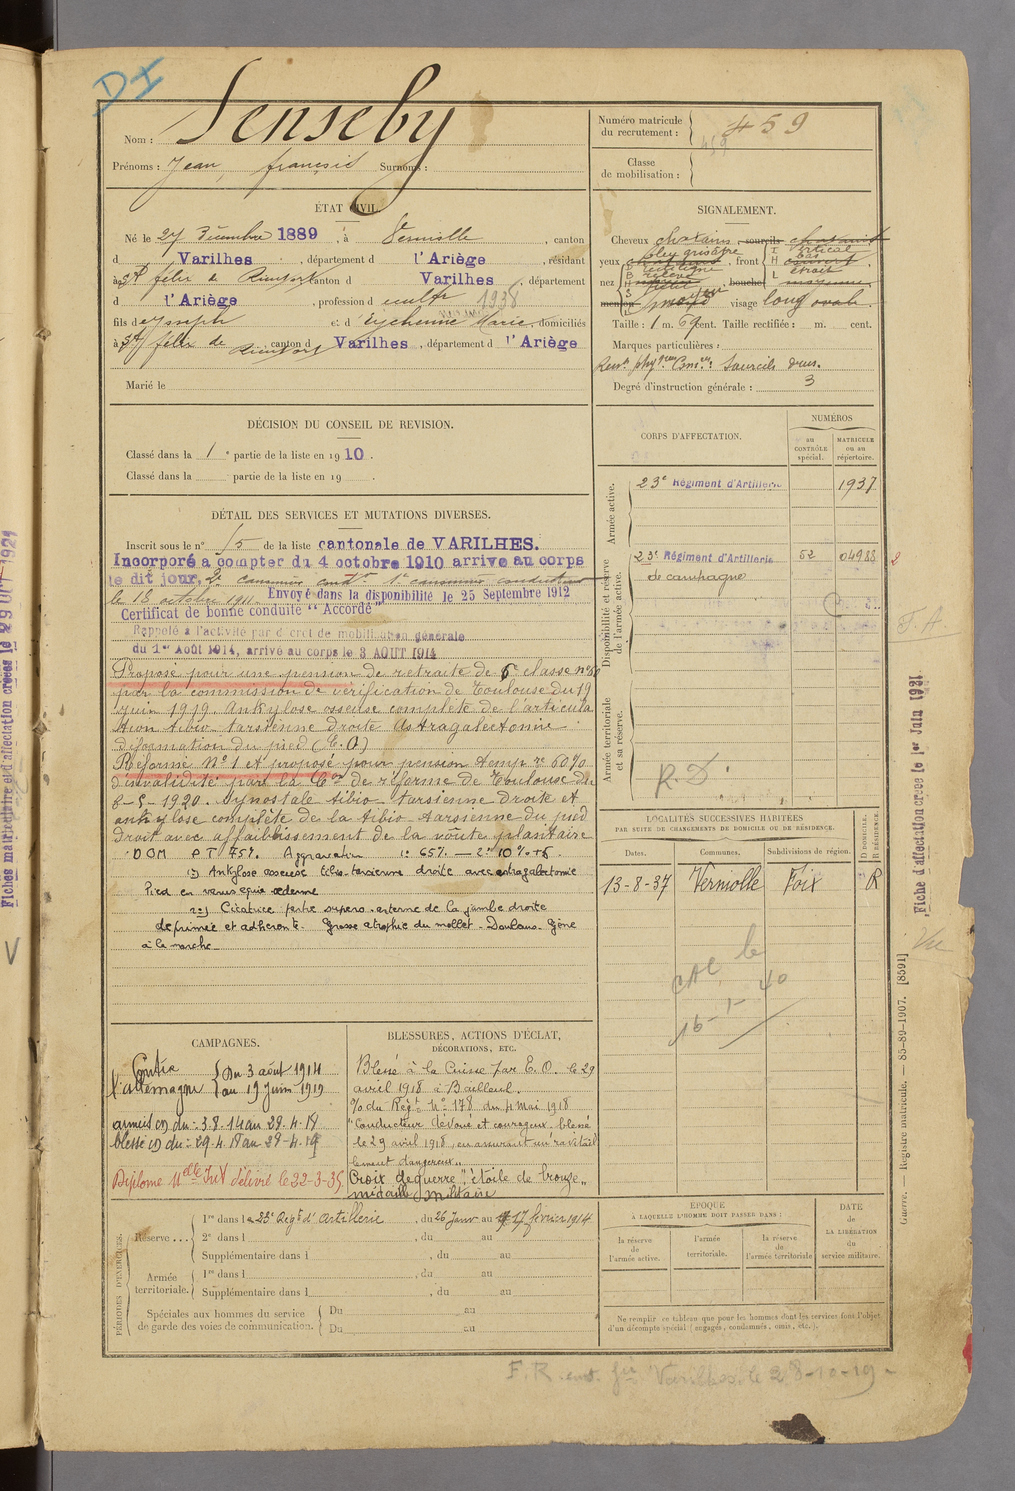 DI
Nom : Senseby
Prénoms : Jean, françois Surnoms :
Numéro matricule du recrutement : 459
459
Classe de mobilisation :
ÉTAT CIVIL.
Né le 27 Décembre 1889, à Verniolle, canton
d Varilhes, département d l'Ariège, résidant
à St félix de Rieutort canton d Varilhes, département
d l'Ariège, profession d cultr 1938
fils de Joseph et d Eychenne Marie, domiciliés
à St félix de Rieutort, canton d Varilhes, département d l'Ariège
Marié le
SIGNALEMENT.
Cheveux chatains, sourcils chatains
yeux bleu grisâtre, front I vertical H bas L étroit
nez rectiligne, bouche moyenne
menton visage long ovale
Taille : 1 m. 69 cent. Taille rectifiée : m. cent.
Marques particulières :
Rens. phy. Sourcils drus.
Degré d'instruction générale : 3
DÉCISION DU CONSEIL DE REVISION.
Classé dans la 1e partie de la liste en 1910.
Classé dans la partie de la liste en 19 .
DÉTAIL DES SERVICES ET MUTATIONS DIVERSES.
Inscrit sous le n° 15 de la liste cantonale de VARILHES.
Incorporé a compter du 4 octobre 1910 arrive au corps
le dit jour, 2e canonnier condr 1e canonnier conducteur
le 18 octobre 1911. Envoyé dans la disponibilité le 25 Septembre 1912
Certificat de bonne conduite "Accordé"
Rappelé a l'activité par décret de mobilisation générale
du 1er Août 1914, arrivé au corps le 3 AOUT 1914
Proposé pour une pension de retraite de 6e classe n° 60
par la commission de vérification de Toulouse du 19
juin 1919. Ankylose osseuse complète de l'articula
tion tibio tarsienne droite Astragalectomie
déformation du pied (E.O)
Réformé N° 1 et proposé pour pension temp re 60%
d'invalidité par la Con de réforme de Toulouse du
8-5-1920. Synostale tibio-tarsienne droite et
ankylose complète de la tibio-tarsienne du pied
droit avec affaiblissement de la voûte plantaire
DOM P T 75%. Aggravation 1° 65% — 2° 10% +5.
1°) Ankylose osseuse tibio-tarsienne droite avec astragalectomie
Pied en varus equin œdeme
2°) Cicatrice postro supero-externe de la jambe droite
deprimée et adhérente. Grosse atrophie du mollet. Douleurs. Gène
à la marche
CORPS D'AFFECTATION.
NUMÉROS
au CONTRÔLE spécial.
MATRICULE ou au répertoire.
Armée active.
23e Régiment d'Artillerie 1937
Disponibilité et réserve de l'armée active.
23e Régiment d'Artillerie 52 04988
de campagne
Armée territoriale et sa réserve.
R.D.
LOCALITÉS SUCCESSIVES HABITÉES
PAR SUITE DE CHANGEMENTS DE DOMICILE OU DE RÉSIDENCE.
Dates. Communes. Subdivisions de région. D DOMICILE. R RÉSIDENCE.
13-8-37 Verniolle Foix R
CAC le
16-1-40
CAMPAGNES.
Contre l'allemagne
Du 3 août 1914
au 19 juin 1919
armées (1) du : 3.8.14 au 28.4.18
blessé (1) du : 29.4.18 au 28-4-19
Diplome Melle Int V délivré le 22-3-35
BLESSURES, ACTIONS D'ÉCLAT,
DÉCORATIONS, ETC.
Blessé à la Cuisse par E.O. le 29
avril 1918 à Bailleul.
% du Régt N° 178 du 4 Mai 1918
"Conducteur dévoué et courageux, blessé
le 29 avril 1918, en assurant un ravitail
lement dangereux"
Croix de guerre "étoile de bronze"
médaille Militaire
PÉRIODES D'EXERCICES.
Réserve ... 1re dans le 23e Régt d'artillerie, du 26 Janv au 17 février 1914
2e dans l , du au
Supplémentaire dans l , du au
Armée territoriale. 1re dans l , du au
Supplémentaire dans l , du au
Spéciales aux hommes du service de garde des voies de communication. Du au
Du au
ÉPOQUE
À LAQUELLE L'HOMME DOIT PASSER DANS :
la réserve de l'armée active.
l'armée territoriale.
la réserve de l'armée territoriale
DATE de LA LIBÉRATION du service militaire.
Ne remplir ce tableau que pour les hommes dont les services font l'objet
d'un décompte spécial (engagés, condamnés, omis, etc.).
F.R. Varilhes le 28-10-19-
Fiche d'affectation créée le 1er Juin 1931
Vu
Guerre. — Registre matricule. — 85-89-1907. [8591]
Fiches matriculaire et d'affectation créées le 29 OCT 1921
V